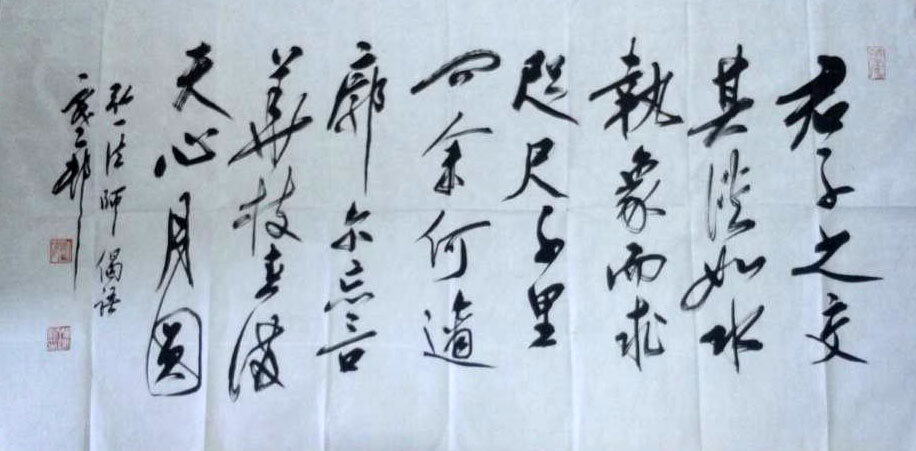 君子之交
其淡如水
執象而求
咫尺千里
问余何適
廓尔忘言
華枝春满
天心月圆
弘一法师偈语